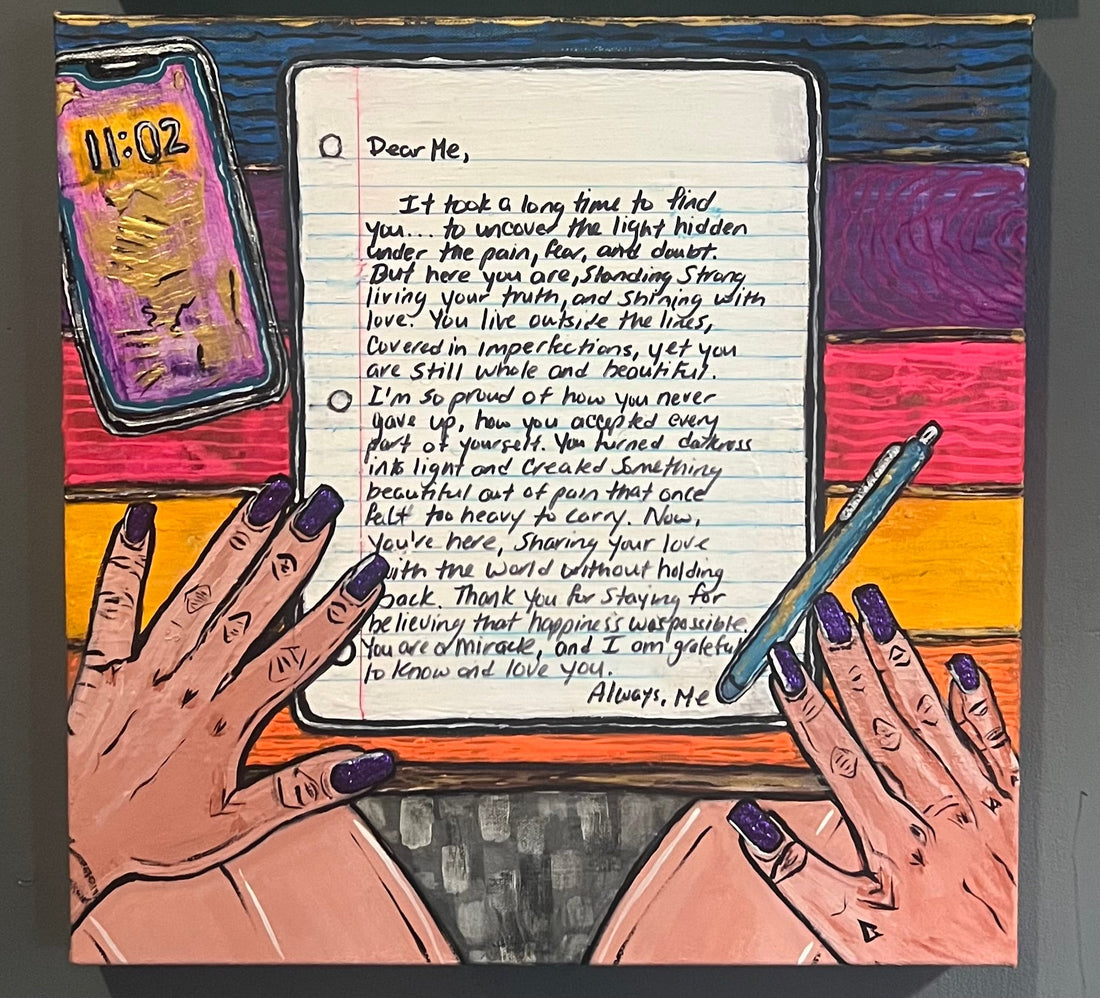 11:02
Dear Me,
It took a long time to find
you.... to uncover the light hidden
under the pain, fear, and doubt.
But here you are, standing strong
living your truth, and shining with
love. You live outside the lines,
covered in imperfections, yet you
are still whole and beautiful.
I'm so proud of how you never
gave up, how you accepted every
part of yourself. You turned darkness
into light and created something
beautiful out of pain that once
felt too heavy to carry. Now,
you're here, sharing your love
with the world without holding
back. Thank you for staying for
believing that happiness was possible.
You are a miracle, and I am grateful
to know and love you.
Always, Me